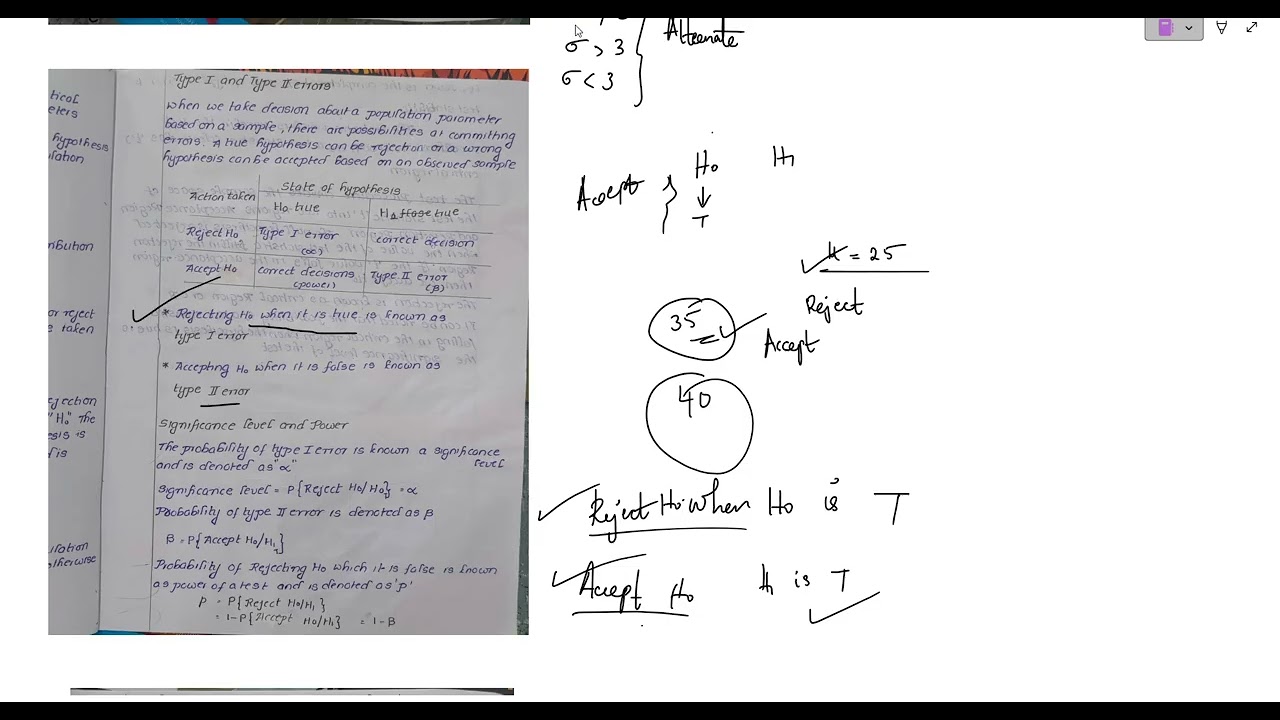 Type I and Type II errors
When we take decision about a population parameter
based on a sample, there are possibilities of committing
errors. A true hypothesis can be rejection or a wrong
hypothesis can be accepted based on an observed sample
Action taken
State of hypothesis
H₀ true
true
Reject H₀
Type I error
(α)
correct decision
Accept H₀
correct decisions
(power)
Type II error
(β)
* Rejecting H₀ when it is true is known as
type I error
* Accepting H₀ when it is false is known as
type II error
Significance level and Power
The probability of type I error is known a significance
level
and is denoted as "α"
Significance level = P{Reject H₀/H₀} = α
Probability of type II error is denoted as β
β = P{Accept H₀/H₁}
Probability of Rejecting H₀ which it is false is known
as power of a test and is denoted as 'p'
P = P{Reject H₀/H₁}
= 1-P{Accept H₀/H₁} = 1-β
hypothesis
or reject
taken
is
σ > 3
σ < 3
Alternate
Accept
H₀
↓
T
H₁
= 25
Reject
35
Accept
40
Reject H₀ when H₀ is T
Accept H₀ H₁ is T